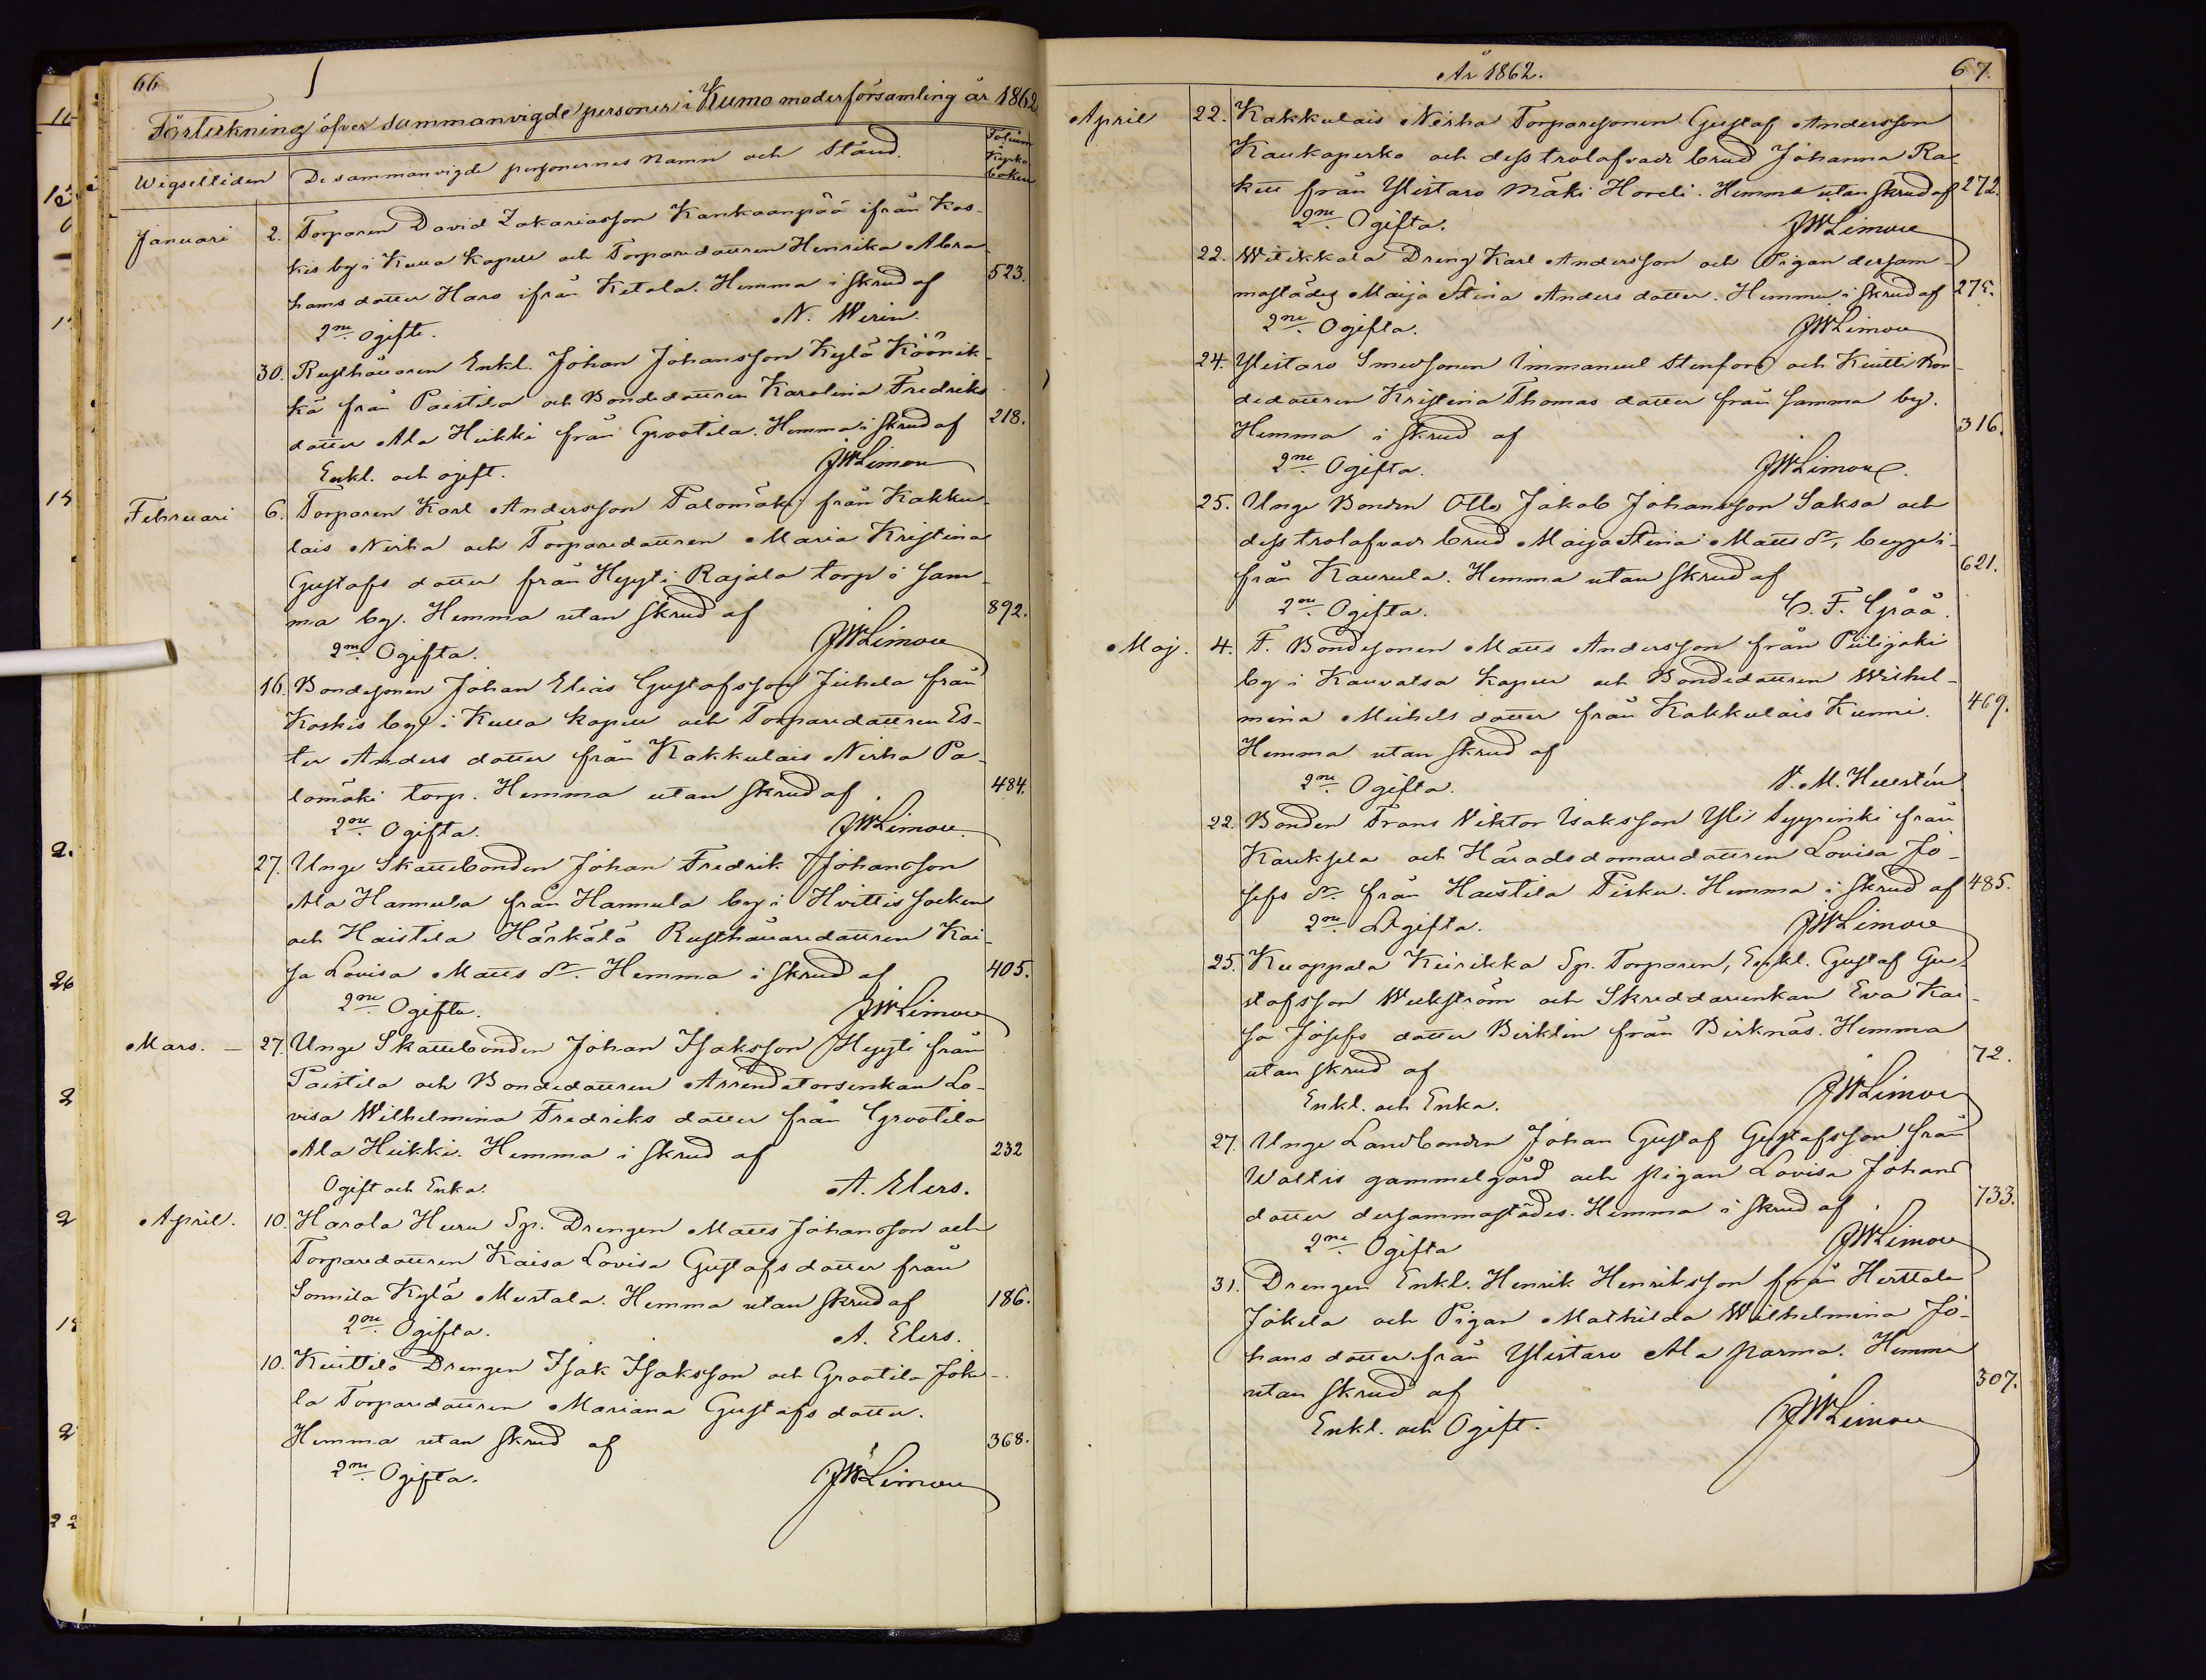 66
Förteckning öfver sammanvigde personer i Kumo moderförsamling år 1862
Wigseltiden
De sammanvigde personernes Namn och Stånd.
Folium i Kyrkoboken
Januari 2. Torparen David Zakariasson Kankaanpää ifrån Kos-
kis by i Kulla Kapell och Torparedottren Henrika Abra-
hams dotter Haro ifrån Ketola. Hemma i skrud af 523.
2ne Ogifte. N. Werin.
30. Rusthållaren Enkl. Johan Johansson Kylä Köönik-
kä från Paistila och Bondedottren Karolina Fredriks
dotter Ala Heikki från Grootila. Hemma i skrud af 218.
Enkl. och ogift. JWLimon
Februari 6. Torparen Karl Andersson Palomäki från Kakku-
lais Nirha och Torparedottren Maria Kristina
Gustafs dotter från Hyyti Rajala torp i sam-
ma by. Hemma utan skrud af 892.
2ne Ogifta. JWLimon
16. Bondesonen Johan Elias Gustafsson Juhela från
Koskis by i Kulla kapell och Torparedottren Es-
ter Anders dotter från Kakkulais Nirha Pa-
lomäki torp. Hemma utan skrud af 484.
2ne Ogifta. JWLimon
27. Unge Skattebonden Johan Fredrik Johansson
Ala Hannula från Hannula by i Hvittis socken
och Haistila Härkälä Rusthållaredottren Kai-
sa Lovisa Matts dr. Hemma i skrud af 405.
2ne Ogifta. JWLimon
Mars. 27. Unge Skattebonden Johan Isaksson Hyyti från
Paistila och Bondedottren Arrendatorsenkan Lo-
visa Wilhelmina Fredriks dotter från Grootila
Ala Heikki. Hemma i skrud af 232
Ogift och Enka. A. Elers.
April. 10. Harola Huru Sp. Drengen Matts Johansson och
Torparedottren Kaisa Lovisa Gustafs dotter från
Sonnila Kylä Mustala. Hemma utan skrud af 186.
2ne Ogifta. A. Elers.
10. Kuittila Drengen Isak Isaksson och Grootila Joke-
la Torparedottren Mariana Gustafs dotter.
Hemma utan skrud af 368.
2ne Ogifta. JWLimon
År 1862. 67.
April 22. Kakkulais Nirha Torparesonen Gustaf Andersson
Kaukoperko och dess trolofvade brud Johanna Ra-
kel från Ylistaro Mäki Horeli. Hemma utan skrud af 272.
2ne Ogifta. JWLimon
22. Witikkala Dreng Karl Andersson och Pigan dersam-
mastädes Maija Stina Anders dotter. Hemma i skrud af 275.
2ne Ogifta. JWLimon
24. Ylistaro Smedsonen Immanuel Stenfors och Kuitti Bon-
dedottren Kristina Thomas dotter från samma by.
Hemma i skrud af 316.
2ne Ogifta. JWLimon.
25. Unge Bonden Otto Jakob Johansson Saksa och
dess trolofvade brud Maija Stina Matts dr, begge i-
från Kaurula. Hemma utan skrud af 621.
2ne Ogifta. C. F. Gråå.
Maj. 4. F. Bondesonen Matts Andersson från Piilijoki
by i Kauvatsa Kapell och Bondedottren Wilhel-
mina Michels dotter från Kakkulais Kunni. 469.
Hemma utan skrud af
2ne Ogifta. V. M. Hellstén
22. Bonden Frans Viktor Isaksson Yli Syyrinki från
Kareksela och Häradsdomaredottren Lovisa Jo-
sefs dr. från Haistila Pisku. Hemma i skrud af 485.
2ne Ogifta. JWLimon
25. Kuoppala Keirikka Sp. Torparen, Enkl. Gustaf Gu-
stafsson Weckström och Skreddarenkan Eva Kai-
sa Josefs dotter Birklin från Birknäs. Hemma
utan skrud af 72.
Enkl. och Enka. JWLimon
27. Unge Landbonden Johan Gustaf Gustafsson från
Wallis gammelgård och pigan Lovisa Johans
dotter dersammastädes. Hemma i skrud af 733.
2ne Ogifta JWLimon
31. Drengen Enkl. Henrik Henriksson från Herttala
Jokela och Pigan Mathilda Wilhelmina Jo-
hans dotter från Ylistaro Ala Parma. Hemma
utan skrud af 307.
Enkl. och Ogift. JWLimon